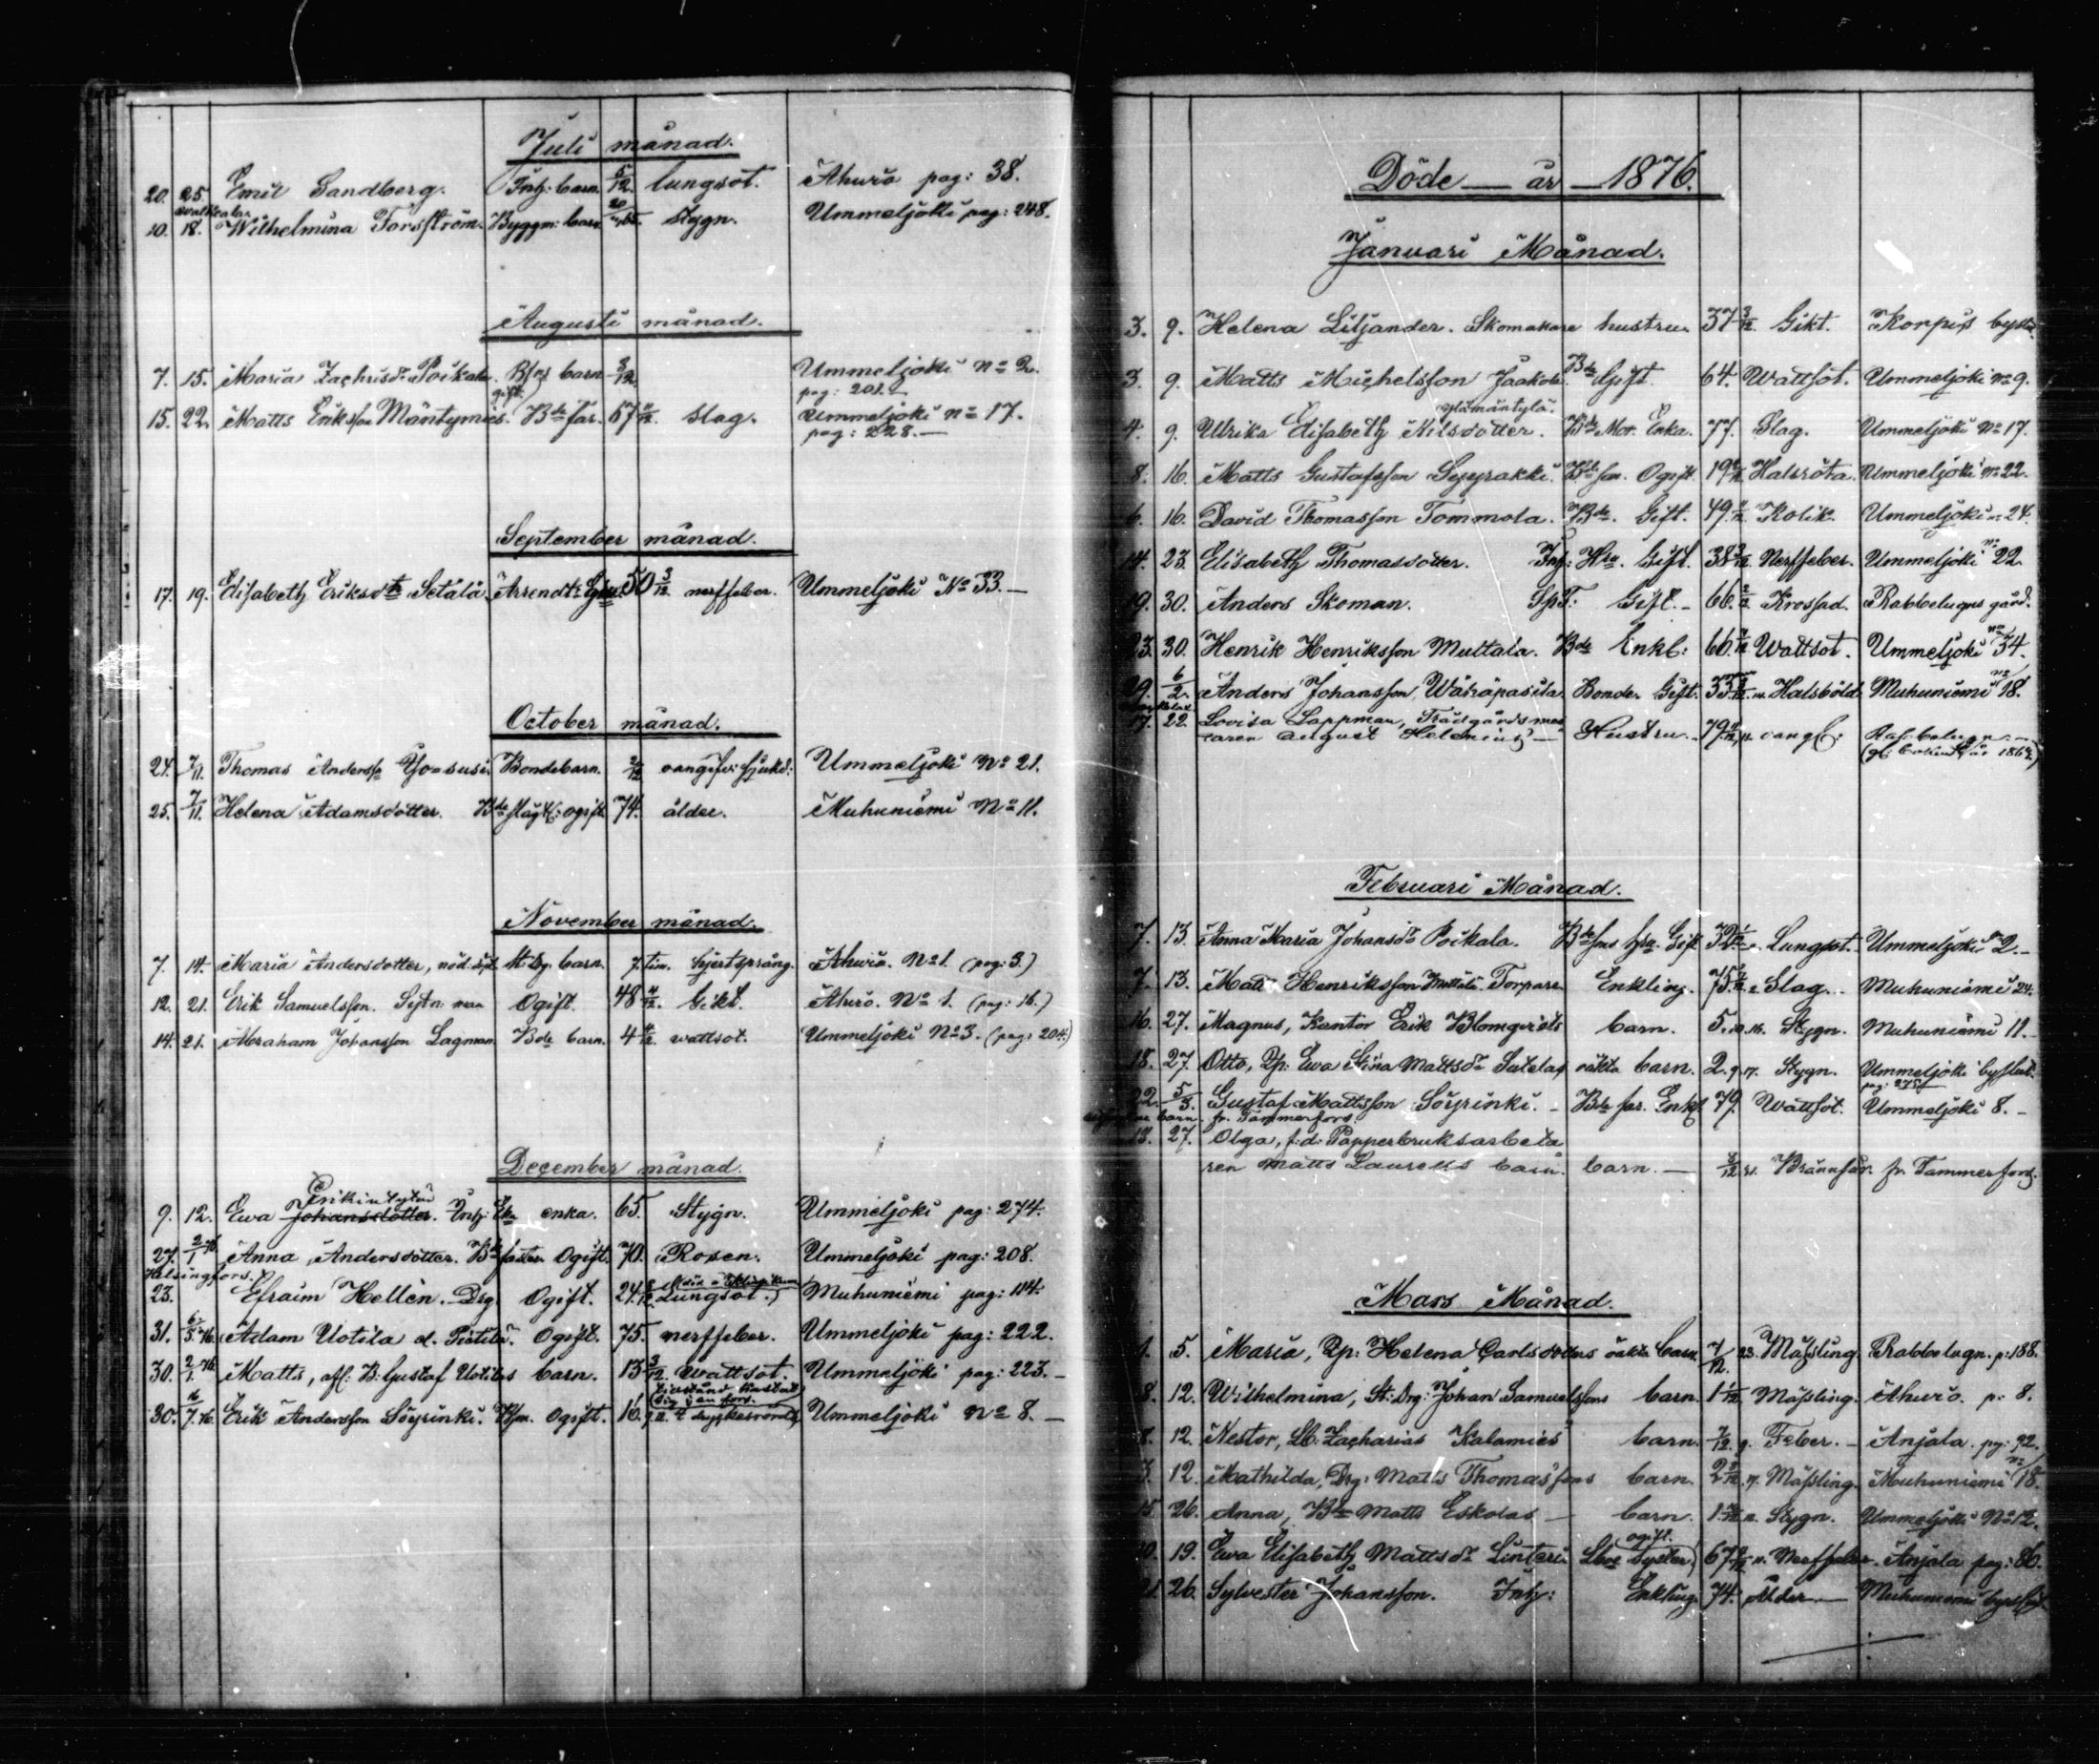 Juli månad.
20. 25. Emil Sandberg. Inh: barn. 5/12. lungsot. Ahurö pag: 38.
10. 18. Wilhelmina Forsström. Byggm: barn. stygn. Ummeljoki pag: 248.
Augusti månad.
7. 15. Maria Zachrisdr Poikala. Bfns barn 3/12. Ummeljoki No 2.
pag: 201.
gift.
15. 22. Matts Eriksson Mäntymies. Bde far. 67 slag. Ummeljoki No 17.
pag: 228.
September månad.
17. 19. Elisabeth Eriksdtr Setälä. Arrendt: 50 3/12 nerffeber. Ummeljoki No 33.
October månad.
24. 7/11. Thomas Anderss Yosusi. Bondebarn. 2/12 oangifv: sjukd: Ummeljoki No 21.
25. 7/11. Helena Adamsdotter. Bde ogift 74. ålder. Muhuniemi No 11.
November månad.
7. 14. Maria Andersdotter, nöd. St. Drg. barn. 7. tim. hjertsprång. Ahurö. No 1. (pag: 3.)
12. 21. Erik Samuelsson. Ogift. 48 4/12. Gikt. Ahurö. No 1. (pag: 16.)
14. 21. Abraham Johansson Lagman Bde barn. 4 4/12 wattsot. Ummeljoki No 3. (pag: 204.)
December månad.
Erikintytär
9. 12. Ewa Johansdotter. Inh: Eka enka. 65. Stygn. Ummeljoki pag: 274.
27. 2/1 76. Anna Andersdotter. Bde faster Ogift. 70. Rosen. Ummeljoki pag: 208.
Helsingfors.
23. Efraim Hellén. Drg Ogift. 24. Lungsot.) Muhuniemi pag: 114.
31. 6/3. 76. Adam Uotila l. Pietilä. Ogift. 75. nerffeber. Ummeljoki pag: 222.
30. 2/1. 76. Matts, afl: B: Gustaf Uotilas barn. 13 3/12. Wattsot. Ummeljoki pag: 223.
30. 16/7. 76. Erik Andersson Söyrinki. Ogift. 16. Ummeljoki No 8.
Döde år 1876.
Januari Månad.
3. 9. Helena Liljander. Skomakare hustru. 37 3/12. Gikt. Korpis by
3. 9. Matts Michelsson Jaakola. Bde Gift. 64. Wattsot. Ummeljoki No 9.
Ylämäntylä.
4. 9. Ulrika Elisabeth Nilsdotter. Bde Mor. Enka. 77. Slag. Ummeljoki No 17.
8. 16. Matts Gustafsson Seppakki. Bde son. Ogift 19 Halsröta. Ummeljoki No 22.
6. 16. David Thomasson Tommola. Bde. Gift. 49. Kolik. Ummeljoki No 24.
14. 23. Elisabeth Thomasdotter. Inh: Hru. Gift. 38 Nerffeber. Ummeljoki No 22.
19. 30. Anders Skoman. Gift. 66. Krossad. Rabbelugns gård.
23. 30. Henrik Henriksson Multala. Bde Enkl: 66. Wattsot. Ummeljoki No 34.
29. 6/2. Anders Johansson Wähäpasila Bonde. Gift. 33 Halsböld. Muhuniemi No 18.
17. 22. Lovisa Lappman, Trädgårdsmäs
taren August Helenius Hustru. 79 oangf:
Februari Månad.
7. 13. Anna Maria Johansdr Poikala. Bde sons hru. Gift 32 Lungsot. Ummeljoki No 2.
7. 13. Matts Henriksson Torpare Enkling. 75. Slag. Muhuniemi 24.
16. 27. Magnus, Kantor Erik Blomqvists barn. 5. 10. 16. Stygn. Muhuniemi 11.
18. 27. Otto, Pp: Ewa Stina Mattsdr Sutelas oäkta barn. 2. 9. 17. Stygn. Ummeljoki
22. 5/3. Gustaf Mattsson Söyrinki. Bde far. Enkl. 79. Wattsot. Ummeljoki 8.
fr. Tammerfors.
13. 27. Olga, f:d: Pappersbruksarbeta
ren Matts Laurells barn. barn. 8/12 21. Brännsår. fr. Tammerfors.
Mars Månad.
1. 5. Maria, Pp: Helena Carlsdotters oäkta barn 7/12. 23. Mässling. Rabbelugn. p: 188.
8. 12. Wilhelmina, St: Drg: Johan Samuelssons barn. 1 1/12. Mässling. Ahurö. p: 8.
8. 12. Nestor, Lb: Zacharias Kalamies barn. 7/12. 9. Feber. Anjala. pg: 92.
3. 12. Mathilda, Drg: Matts Thomassons barn. 2 Mässling. Muhuniemi No 18.
15 26. Anna, Bde Matts Eskolas barn. 1 Stygn. Ummeljoki No 12.
ogift.
10. 19. Ewa Elisabeth Mattsdr Linteri. Lboe syster) 67 Nerffeber. Anjala pag: 86.
21. 26. Sylvester Johansson. Inh: Enkling 74. ålder. Muhuniemi